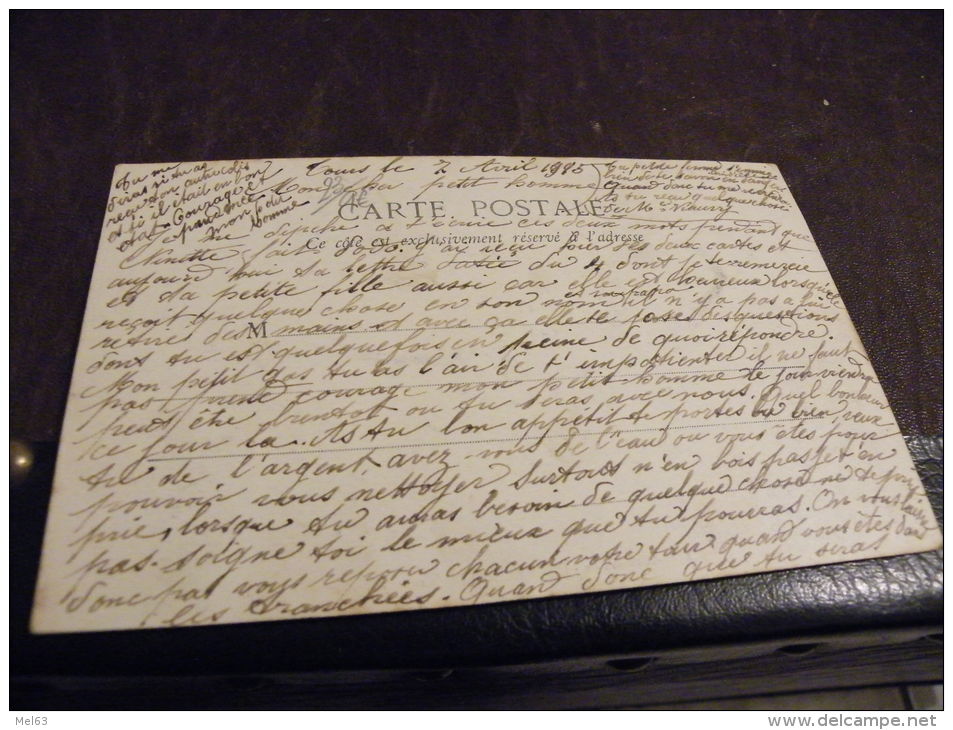 Tu me
diras si tu as
reçu ton
et si il était en bon
état Courage et
mon petit
homme
Tours le 7 Avril 1915
petit homme
Ta petite femme
Quand donc tu me
CARTE POSTALE
Ce côté est exclusivement réservé à l'adresse
Je me dépêche à t'écrire ces deux mots pendant que
Ginette fait dodo. J'ai reçu tes deux cartes et
aujourd'hui ta lettre datée du 4 dont je te remercie
et ta petite fille aussi car elle est heureuse lorsqu'elle
reçoit quelque chose en son nom et il n'y a pas à lui
retirer des mains et avec ça elle te pose des questions
M
dont tu est quelquefois en peine de quoi répondre.
Mon petit gas tu as l'air de t'impatienter il ne faut
pas prend courage mon petit homme le jour viendra
peut être bientôt ou tu seras avec nous. Quel bonheur
ce jour la. As tu bon appétit te portes tu bien, veux
tu de l'argent avez-vous de l'eau ou vous êtes pour
pouvoir vous nettoyer surtout n'en bois pas je t'en
prie, lorsque tu auras besoin de quelque chose ne te prive
pas. soigne toi le mieux que tu pourras. On vous laisse
donc pas vous reposer chacun votre tour quand vous êtes dans
les tranchées. Quand donc que tu seras
Mel63
http://www.delcampe.net